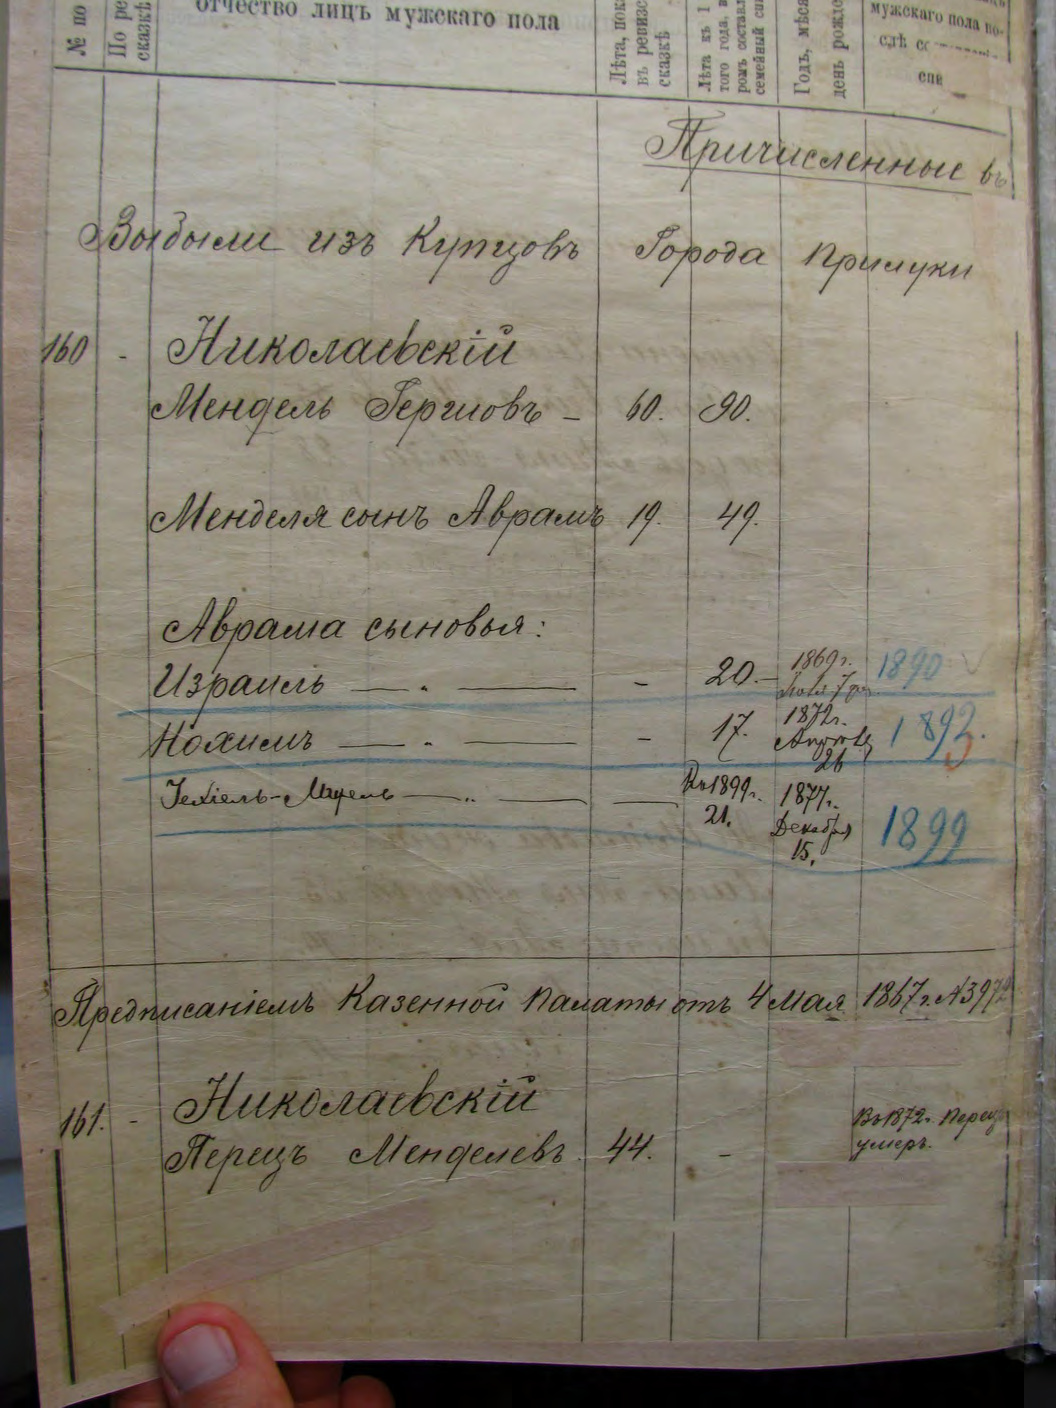 № по
По ре
сказкѣ
отчество лицъ мужскаго пола
Лѣта, пок
въ ревизс
сказкѣ
Лѣта къ 1
того года, в
ромъ состав
семейный спи
Годъ, мѣся
день рожде
мужскаго пола по-
слѣ
спи
Причисленные въ
Выбыли изъ Купцовъ Города Прилуки
160 - Николаевскій
Мендель Гершовъ - 60. 90.
Менделя сынъ Аврамъ 19. 49.
Аврама сыновья:
Израиль — „ — - 20. - 1869 г. 1890
7
Нохимъ — „ — - 17. 1872 г. 1893.
26
Іехіель- — „ — — Къ 1899 г. 1877 г.
21. Декабря 1899
15.
Предписаніемъ Казенной Палаты отъ 4 Мая 1867 г. № 3972
161. - Николаевскій
Перецъ Менделевъ. 44. - Въ 1872 г. Перецъ
умеръ.